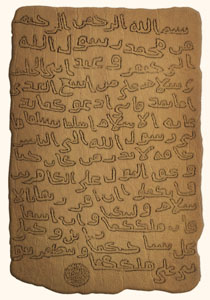 بسم الله الرحمن الرحيم
من محمد رسول الله
الى جيفر و عبد ابني الجلند
ى السلام على من اتبع الهدى
اما بعد فاني ادعوكما بد
عاية الاسلام اسلما تسلما فا
ني رسول الله الى الناس
كافة لانذر من كان حيا
و يحق القول على الكافرين
و انكما ان اقررتما بالا
سلام و ليتكما و ان ابيتما
ملككما
بساحتكما و تظهر نبو
تي على ملككما